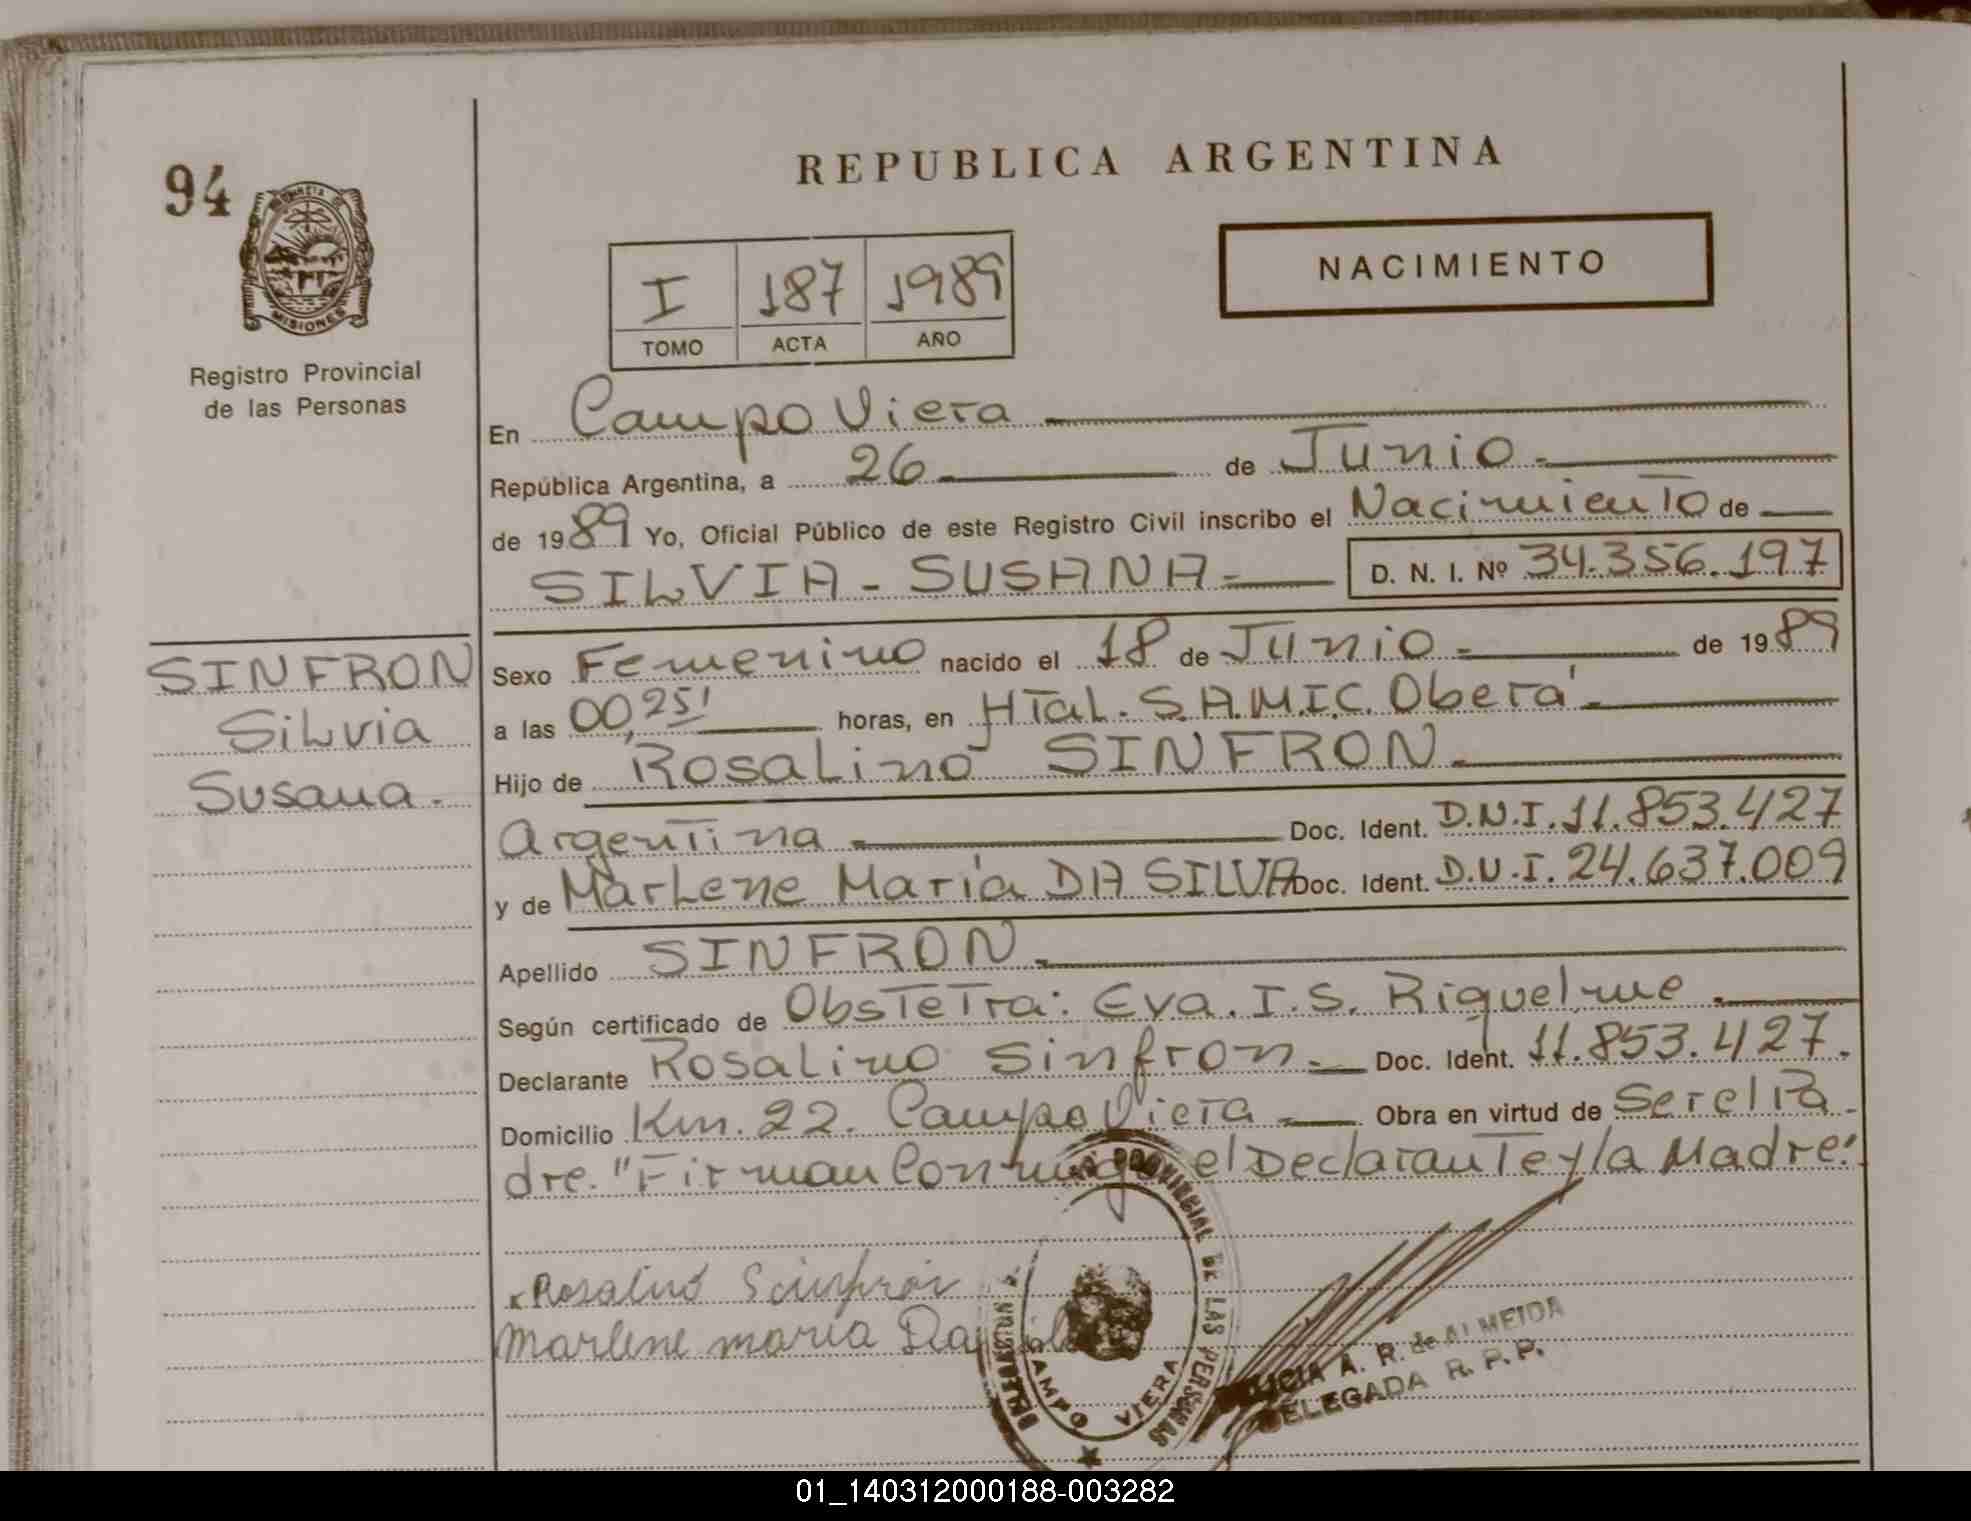 94
REPUBLICA ARGENTINA
NACIMIENTO
I 187 1989
TOMO ACTA AÑO
MISIONES
Registro Provincial
de las Personas
En Campo Viera
República Argentina, a 26 de Junio
de 1989 Yo, Oficial Público de este Registro Civil inscribo el Nacimiento de
SILVIA - SUSANA - D. N. I. Nº 34.356.197
SINFRON
Silvia
Susana.
Sexo Femenino nacido el 18 de Junio de 1989
a las 00,25' horas, en HTal. S.A.M.I.C. Oberá
Hijo de Rosalino SINFRON
Argentina Doc. Ident. D.N.I. 11.853.427
y de Marlene María DA SILVA Doc. Ident. D.N.I. 24.637.009
Apellido SINFRON
Según certificado de Obstetra: Eva. I. S. Riquelme
Declarante Rosalino Sinfron Doc. Ident. 11.853.427.
Domicilio Km. 22. Campo Viera Obra en virtud de Ser el Pa
dre. "Firman Conmigo el Declarante y la Madre."
Rosalino Sinfron
Marlene maria Da
PROVINCIAL DE LAS PERSONAS
CAMPO VIERA
A. R. de ALMEIDA
DELEGADA R. P. P.
01_140312000188-003282